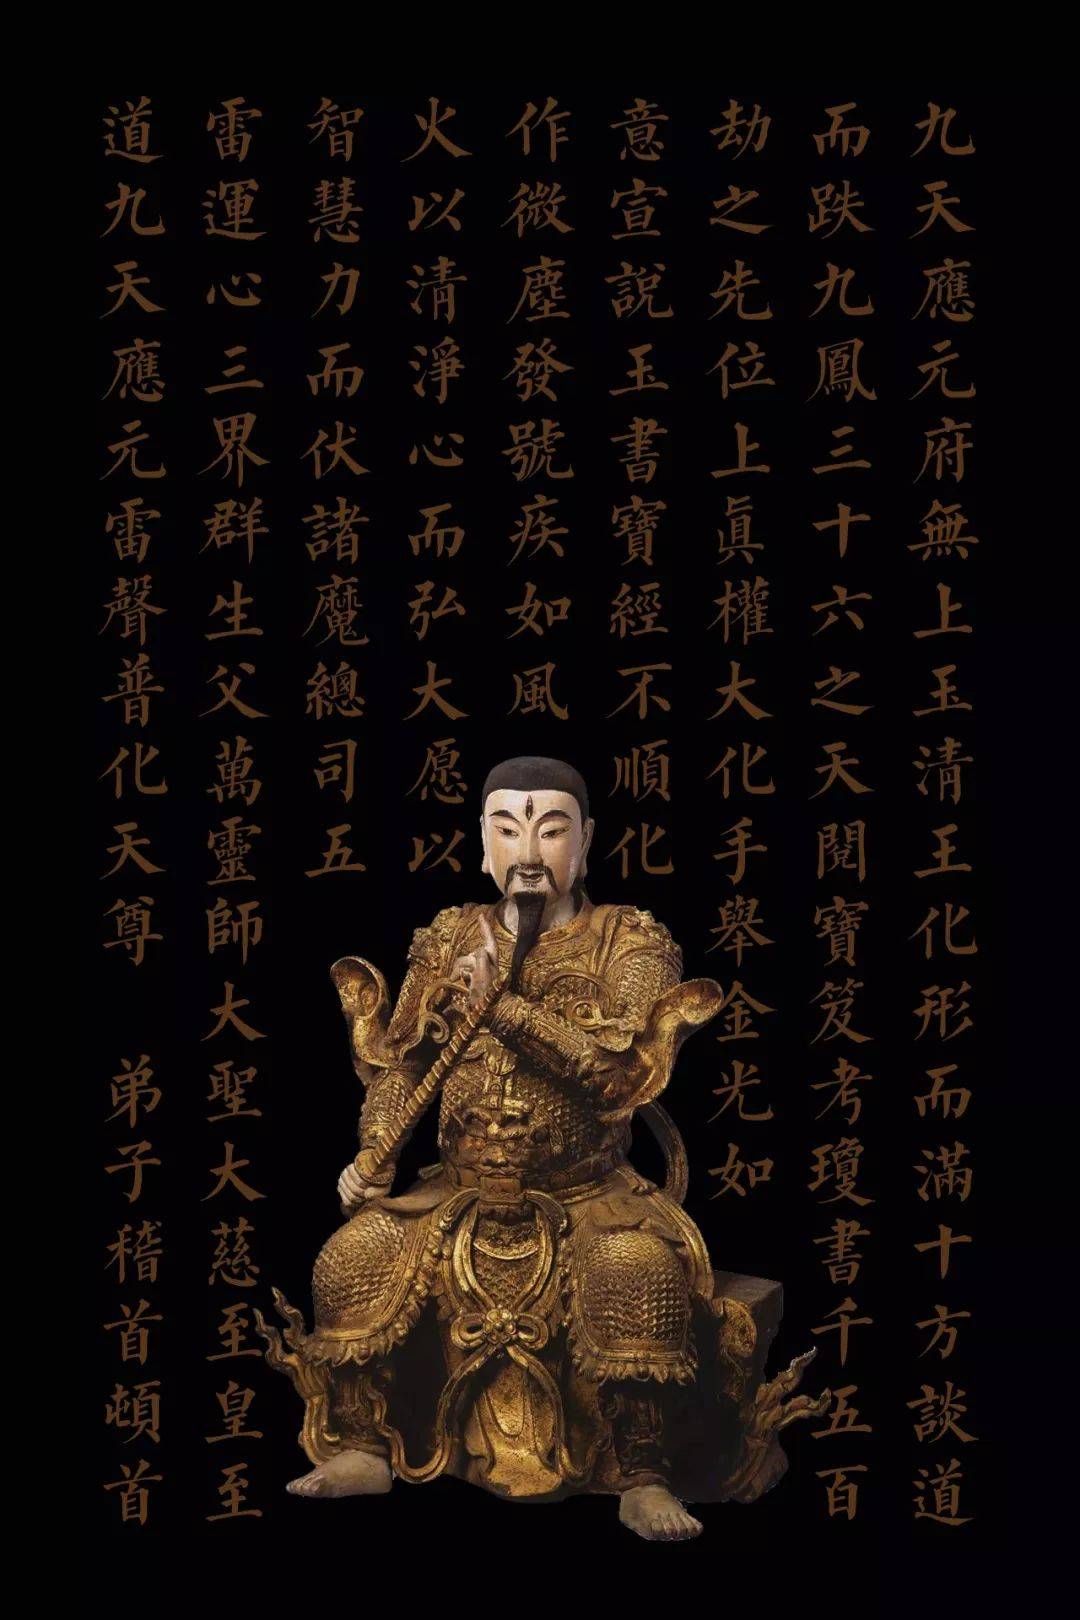 九天應元府無上玉清王化形而滿十方談道
而趺九鳳三十六之天閱寶笈考瓊書千五百
劫之先位上眞權大化手舉金光如
意宣說玉書寶經不順化
作微塵發號疾如風
火以清淨心而弘大愿以
智慧力而伏諸魔總司五
雷運心三界群生父萬靈師大聖大慈至皇至
道九天應元雷聲普化天尊 弟子稽首頓首